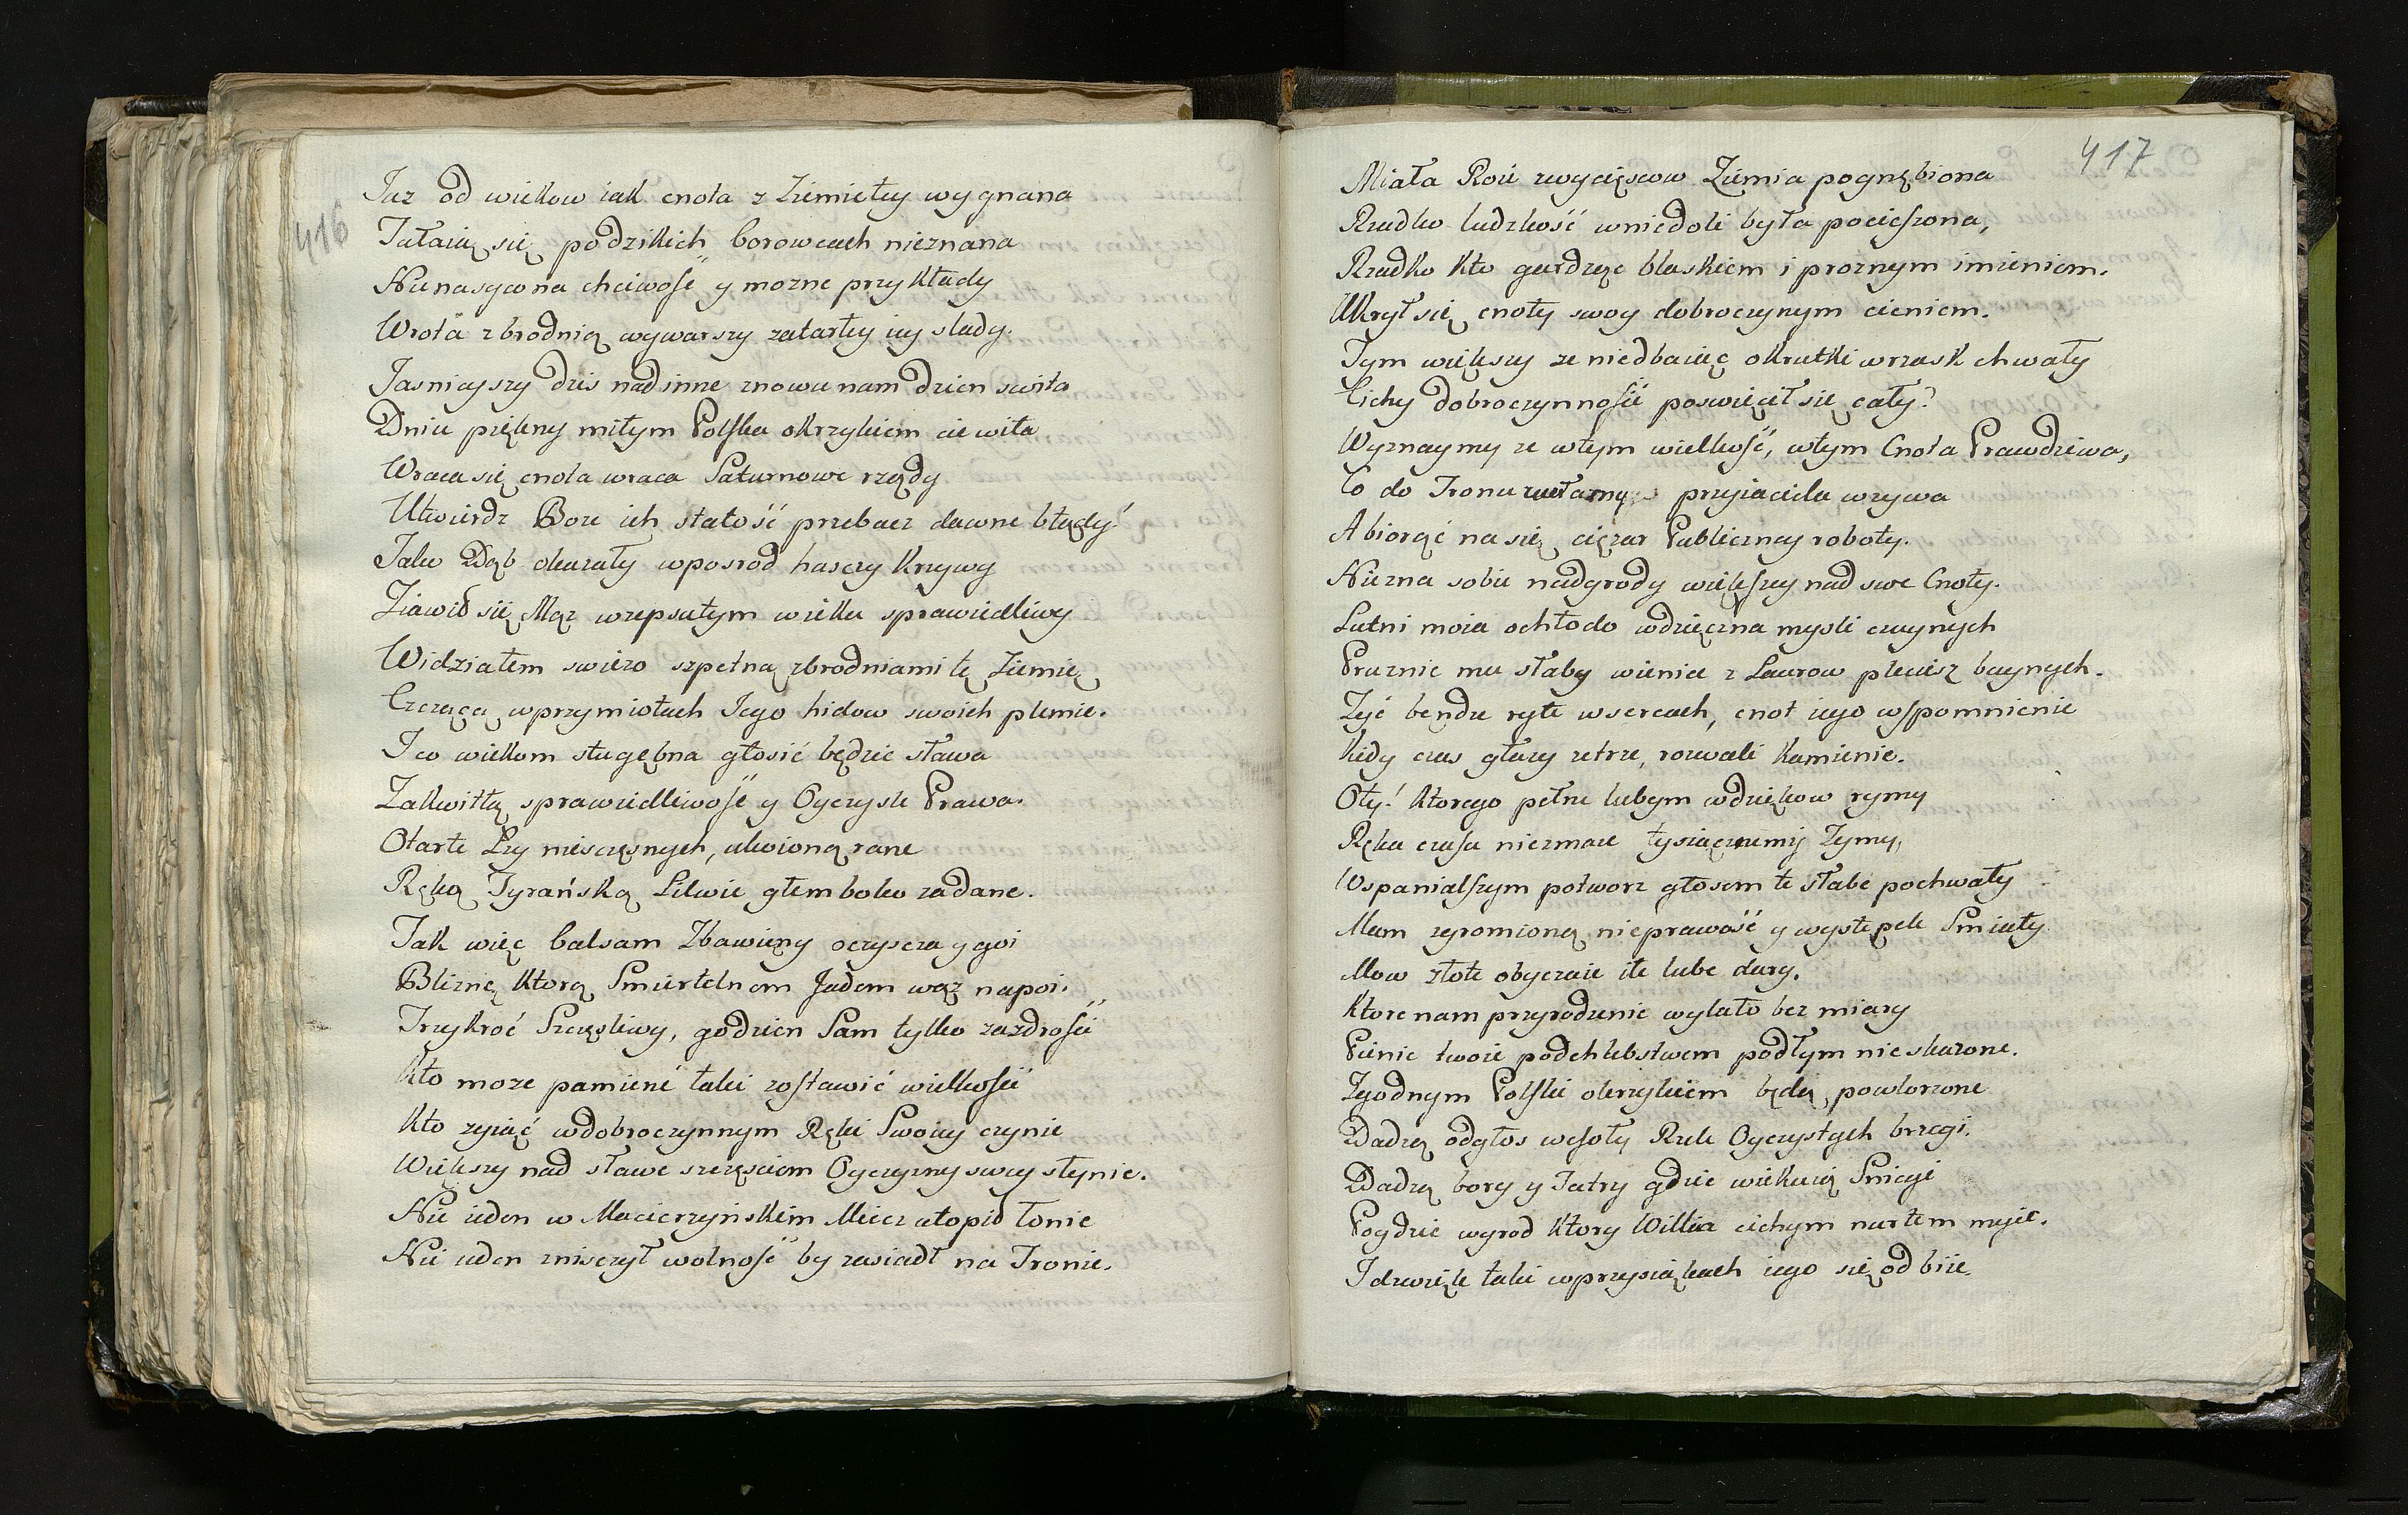 416
Juz od wiekow iak cnota z Ziemie tey wygnana
Tułaiąc się podzikich borowcach nieznana
Nienasycona chciwośc y mozne przykłady
Wrota zbrodnią wywarszy zatarły iey slady.
Jasnieyszy dzis nad inne znowu nam dzien swita
Dniu piękny miłym Polska okrzykiem cie wita
Wraca się cnota wraca Saturnowe rządy
Utwierdz Boze ich stałość przebacz dawne błędy!
Jako Dąb okazały wposrod haszczy krzywy
Ziawił się Mąz wzepsutym wieku sprawiedliwy
Widziałem swiezo szpetną zbrodniami tę Ziemię
Czczącą wprzymiotach Jego bidow swoich plemie.
I co wiekom stugębna głosić będzie sława
Zakwitłą sprawiedliwośc y Oyczysle Prawa.
Otarte Łzy niesczęsnych, ukoioną rane
Ręką Tyrańską Litwie głemboko zadane.
Tak więc balsam Zbawieny oczyscza y goi
Bliznę ktorą Smiertelnem Jadem wąz napoi.
Trzykroć Szczęsliwy, godzien Sam tylko zazdrości
Kto moze pamienć taki zostawić wielkości
Kto zyiąć wdobroczynnym Ręki Swoiey czynie
Większy nad sławe szczęsciem Oyczyzny swey słynie.
Nie ieden w Macierzyńskim Miecz utopił łonie
Nie ieden zniszczył wolnośc by zasiadł na Tronie.
417
Miała Roie zwycięscow Ziemia pognębiona
Rzadko ludzkość wniedoli była pocieszona,
Rzadko kto gardząc blaskiem i proznym imieniem.
Ukrył się cnoty swoy dobroczynnym cieniem.
Tym większy ze niedbaiąc okrutki wrzask chwały
Cichy dobroczynności poswięcił się cały?
Wyznaymy ze wtym wielkość, wtym Cnota Prawdziwa,
Co do Tronu przyiaciela wzywa
A biorąć na się cięzar Publiczney roboty.
Niezna sobie nadgrody większey nad swe Cnoty.
Lutni moia ochłodo wdzięczna mysli czuynych
Pruznie mu słaby wieniec z Laurow pleciesz buynych.
Zyć bendze ryte wsercach, cnot iego wspomnienie
Kiedy czas głazy zetrze, rozwali kamienie.
O ty! ktorego pełne lubym wdziękow rymy
Ręka czasu niezmaze tysiącznemij Zymy,
Wspanialszym potworz głosem te słabe pochwały
Mam zgromioną nieprawość y występek Smiały
Mow złote obyczaie ile lube dary.
Ktore nam przyrodzenie wylało bez miary
Pienie twoie podchlebstwem podłym nieskazone.
Zgodnym Polski okrzykiem będą powtorzone
Dadzą odgłos wesoły Rzek Oyczystych brzegi.
Dadzą bory y Tatry gdzie wiekuią Sniegi
Poydzie wgrod ktory Willia cichym nurtem myie.
I dzwięk taki wprzysiąkach iego się odbiie.